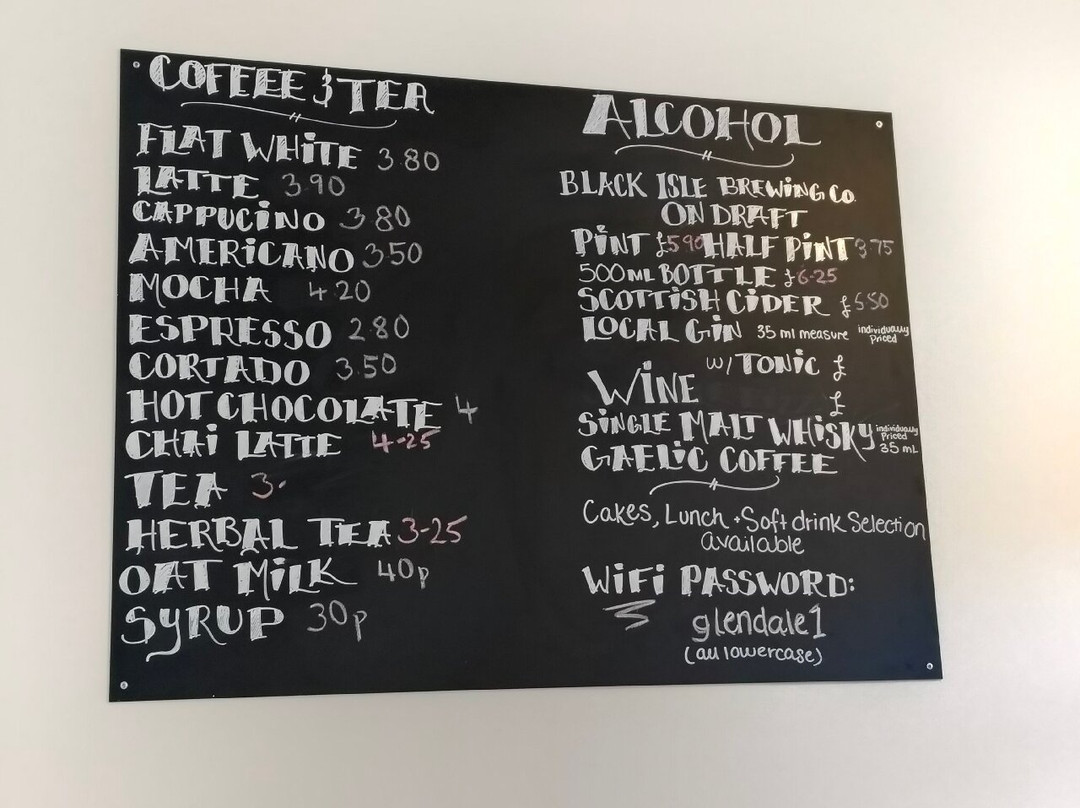 COFEEE & TEA
FLAT WHITE 3.80
LATTE 3.90
CAPPUCINO 3.80
AMERICANO 3.50
MOCHA 4.20
ESPRESSO 2.80
CORTADO 3.50
HOT CHOCOLATE 4
CHAI LATTE 4-25
TEA 3.
HERBAL TEA 3-25
OAT MILK 40p
SYRUP 30p
ALCOHOL
BLACK ISLE BREWING CO.
ON DRAFT
PINT £5.90 HALF PINT 3.75
500ML BOTTLE £6-25
SCOTTISH CIDER £5.50
LOCAL GIN 35 ml measure individually Priced
w/ TONIC £
WINE £
SINGLE MALT WHISKY individually Priced 35 mL
GAELIC COFFEE
Cakes, Lunch + Soft drink Selection
available
WIFI PASSWORD:
glendale1
(all lowercase)